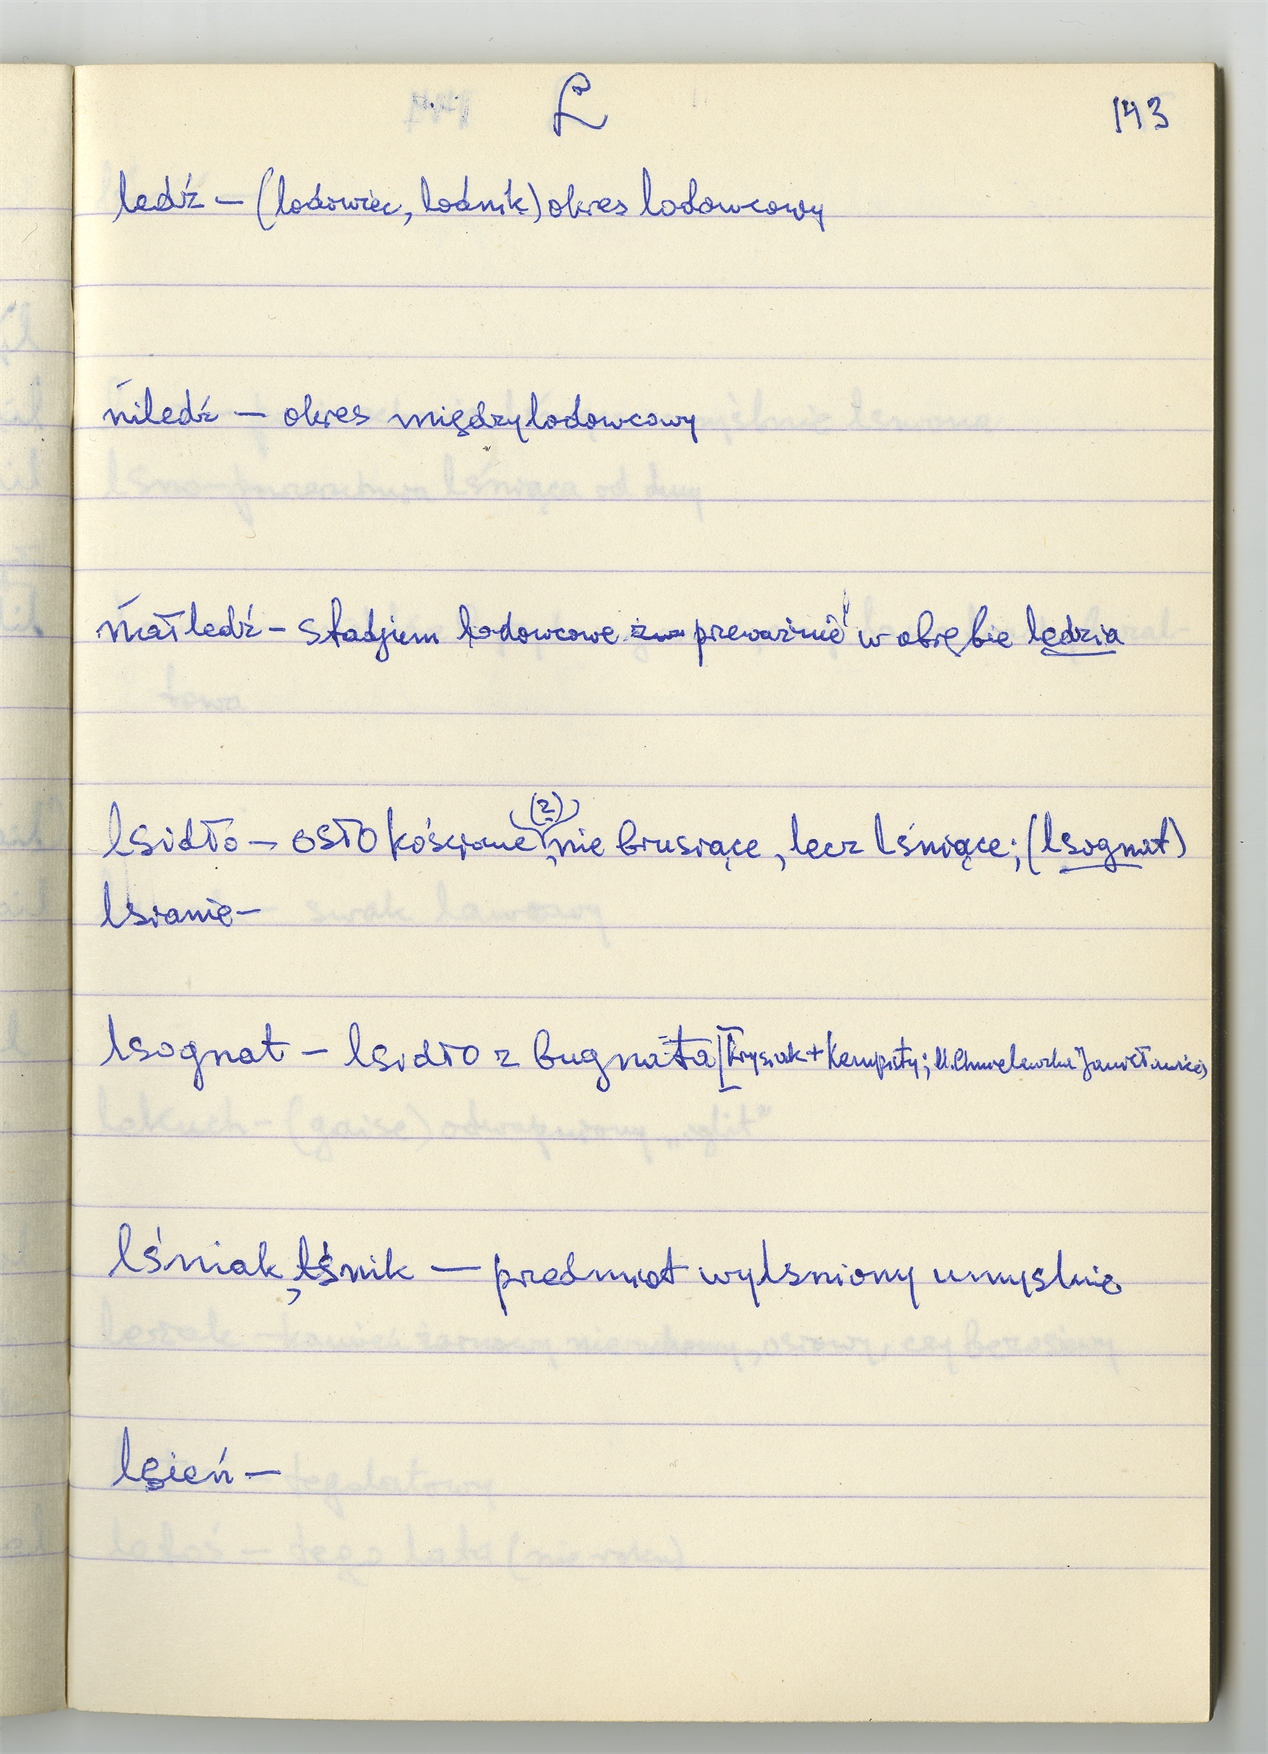 L
143
ledź – (lodowiec, lodnik) okres lodowcowy
niledź – okres międzylodowcowy
małledź – stadjum lodowcowe przeważnie w obrębie lędzia
lsidło – osło kościane (z), nie brusiące, lecz lśniące; (lsognat)
lsianie –
lsognat – lsidło z bugnata [Krysiak + Kempisty;
lśniak, lśnik – przedmiot wylsniony umyslnie
lsień –